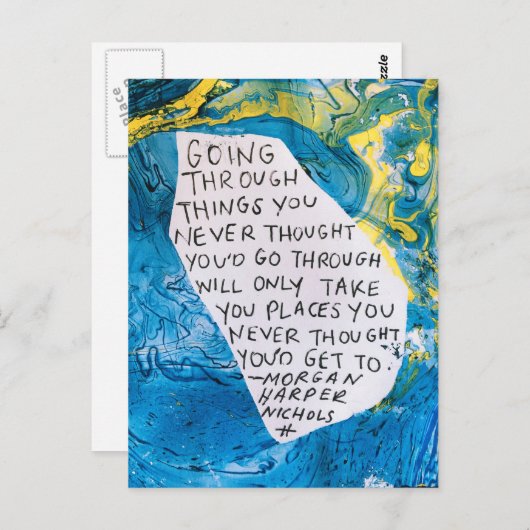 GOING
THROUGH
THINGS YOU
NEVER THOUGHT
YOU'D GO THROUGH
WILL ONLY TAKE
YOU PLACES YOU
NEVER THOUGHT
YOU'D GET TO.
—MORGAN
HARPER
NICHOLS
#